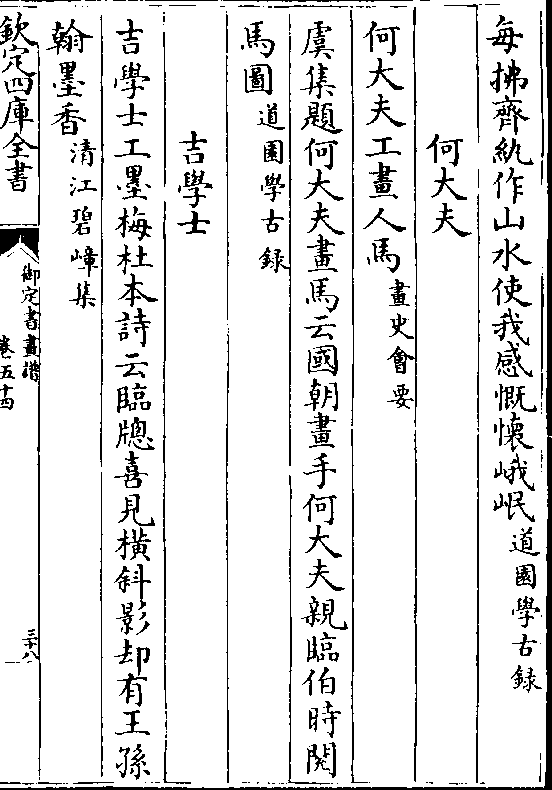 每拂齊紈作山水使我感慨懷峨岷道園學古錄
何大夫
何大夫工畫人馬畫史會要
虞集題何大夫畫馬云國朝畫手何大夫親臨伯時閱
馬圖道園學古錄
吉學士
吉學士工墨梅杜本詩云臨牕喜見橫斜影却有王孫
翰墨香清江碧嶂集
欽定四庫全書
御定書畫譜
卷五十四
三十八